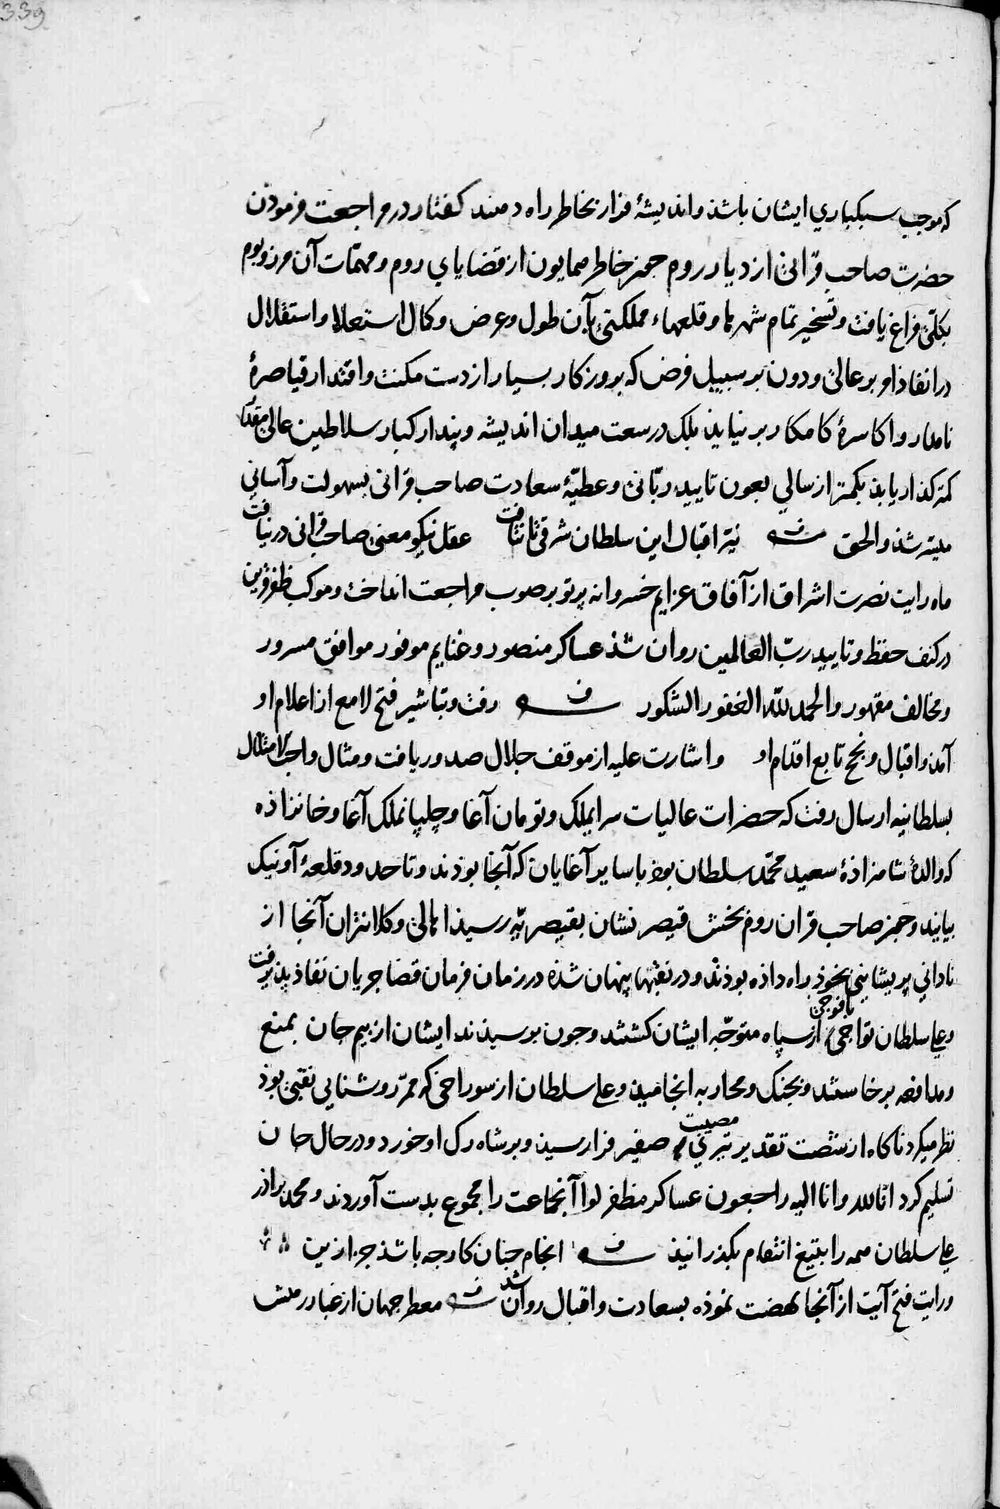 339
که موجب سبکباری ایشان باشذ واندیشهٔ فرار بخاطر راه دهند کفتار در مراجعت فرموذن
حضرت صاحب قرانی از دیار روم جون خاطر همایون از قضایای روم ومهمّات آن مرز وبوم
بکلّی فراغ یافت وتسخیر تمام شهرها وقلعهاء مملکتی بآن طول وعرض وکمال استعلا واستقلال
در انفاذ اوبرعالی ودون برسبیل فرض که بروزکار بسیار از دست مکنت واقتدار قیاصرهٔ
نامدار واکاسرهٔ کامکار برنیاید بلک در سعت میدان اندیشه وپندار کبار سلاطین عالی مقدار
کمتر کذار یابذ بکمتر از سالی بعون تایید ربّانی وعطیّهٔ سعادت صاحب قرانی بسهولت وآسانی
میسّر شذ والحق ت نیّر اقبال این سلطان شرقی تا نتافت عقل نیکو معنی صاحب قرانی درنیافت
ماه رایت نصرت اشراق از آفاق عزایم خسروانه پرتو بر صوب مراجعت انداخت وموکب ظفر قرین
در کنف حفظ وتایید ربّ العالمین روان شذ عساکر منصور وغنایم موفور موافق مسرور
ومخالف مقهور والحمد للّه الغفور الشکور ت رفت وتباشیر فتح لامع از اعلام او
آمذ واقبال ونجح تابع اقدام او واشارت علیه از موقف جلال صدور یافت ومثال واجب الامتثال
بسلطانیه ارسال رفت که حضرات عالیات سرایملک وتومان آغا وچلپانملک آغا وخانزاذه
که والدهٔ شاهزاذهٔ سعید محمّد سلطان بوذ با سایر آغایان که آنجا بوذند وتا حدود قلعهٔ آونیک
بیایند وجون صاحب قران روم بخش قیصر نشان بقیصریّه رسیذ اهالی وکلانتران آنجا از
نادانی پریشانی بخوذ راه داذه بوذند ودر نقبها پنهان شذه در زمان فرمان قضا جریان نفاذ پذیرفت
وعلی سلطان تواجی با فوجی از سپاه متوجّه ایشان کشتند وجون برسیذند ایشان از بیم جان بمنع
ومدافعه برخاستند وبجنک ومحاربه انجامیذ وعلی سلطان از سوراخی که ممرّ روشنایی نقبی بوذ
نظر میکرد ناکاه از شصت تقدیر تیری مصیبت صفیر فراز رسیذ وبر شاه رک او خورد ودر حال جان
تسلیم کرد انا لله وانا الیه راجعون عساکر مظفر لوا آنجماعت را مجموع بدست آوردند ومحمد براذر
علی سلطان همه را بتیغ انتقام بکذرانیذ ت انجام جنان کار چه باشذ جز ازین
ورایت فتح آیت از آنجا نهضت نموذه بسعادت واقبال روان شذ ت معطر جهان از غبار رهش